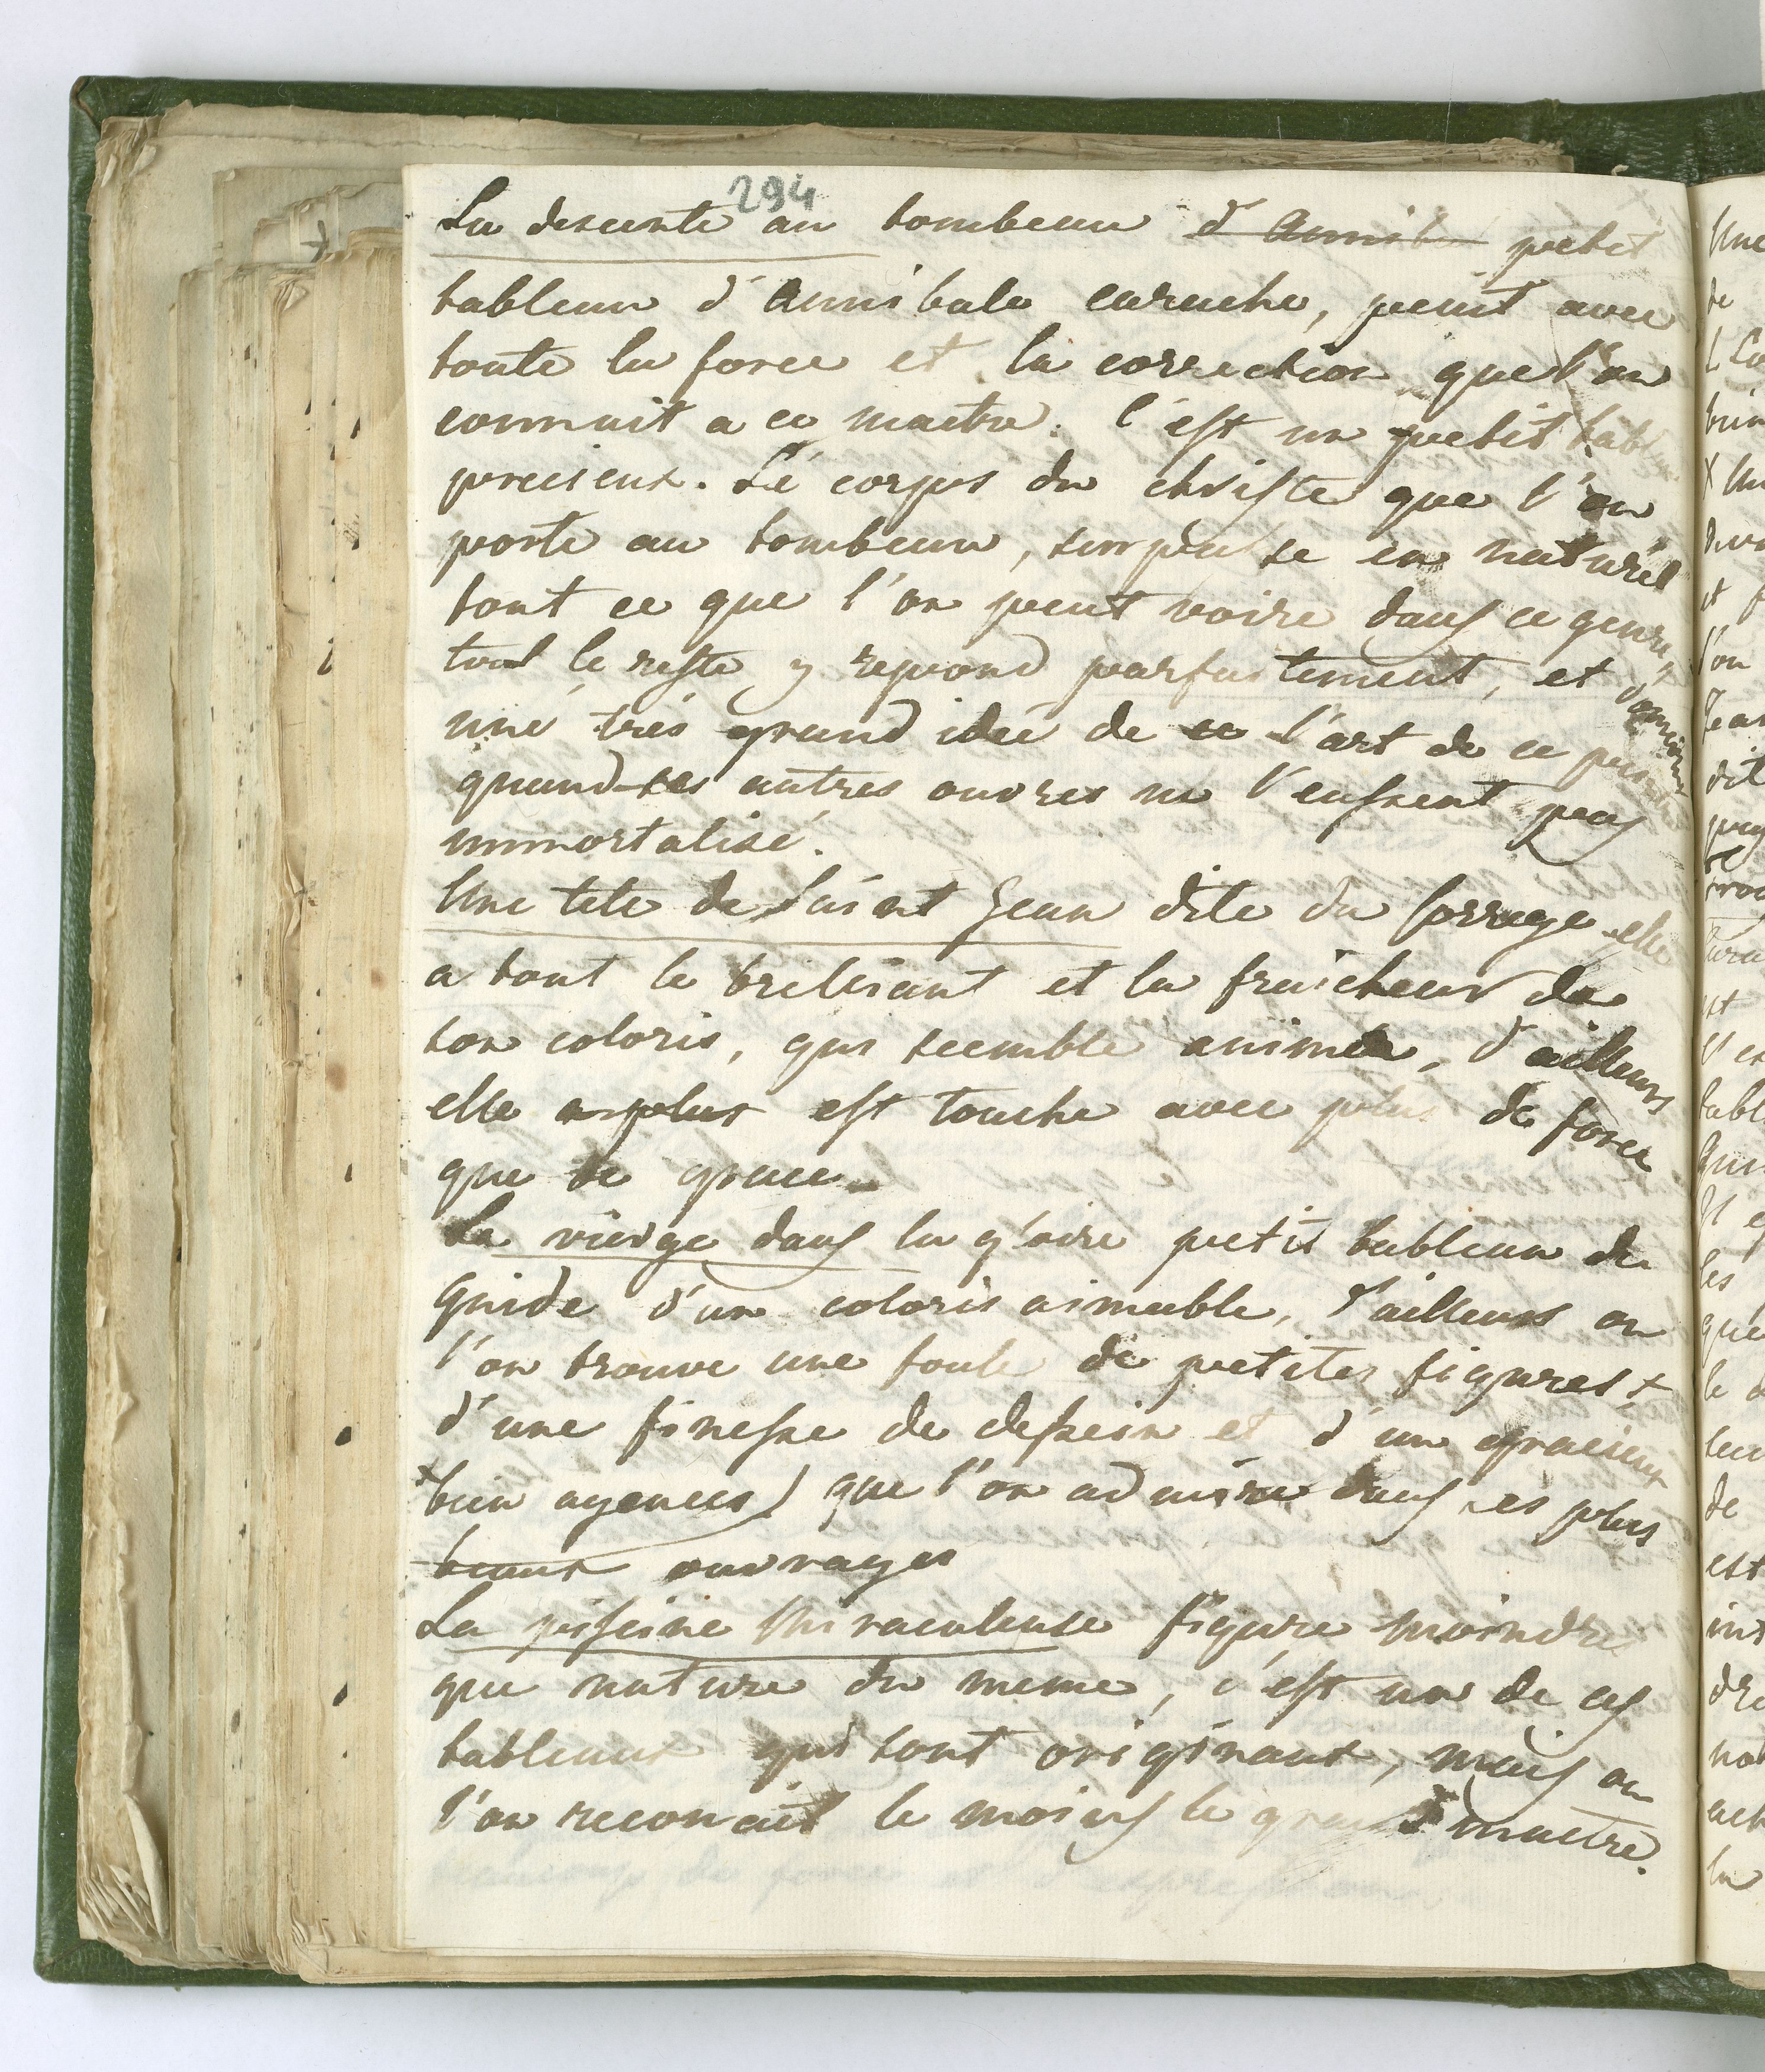 294
La descente au tombeau d'Annib petit
tableau d'Annibale carache, peint avec
toute la force et la correction que l'on
connait a ce maitre. C'est un petit tabl
precieux. Le corps du christe que l'on
porte au tombeau, surpasse en naturel
tout ce que l'on peut voire dans ce genre,
tout le reste y repond parfaitement, et donnerai
une très grand idée de ce l'art de ce peintre
quand ses autres ouvres ne l'eussent pas
immortalisé.
Une tete de Saint Jean dite du Correge elle
a tout le brillant et la fraicheur de
son coloris, qui seemble animée, d'ailleurs
elle a plus est touche avec plus de force
que de grace.
La vierge dans la gloire petit tableau de
Guide d'un coloris aimable, d'ailleurs ou
l'on trouve une foule de petites figures +
d'une finesse de dessein et d'un gracieux
+ bien agencées) que l'on admire dans ses plus
beaux ouvrages
La piscine Miraculeuse figure moindre
que nature du meme, c'est un de ces
tableaux qui sont originaux, mais ou
l'on reconait le moins le grand maitre.